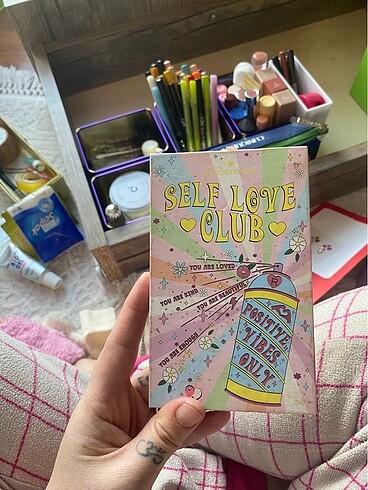 SELF LOVE
CLUB
YOU ARE LOVED
YOU ARE KIND
YOU ARE BEAUTIFUL
YOU ARE ENOUGH
R
POSITIVE
VIBES
ONLY
CLINIQUE